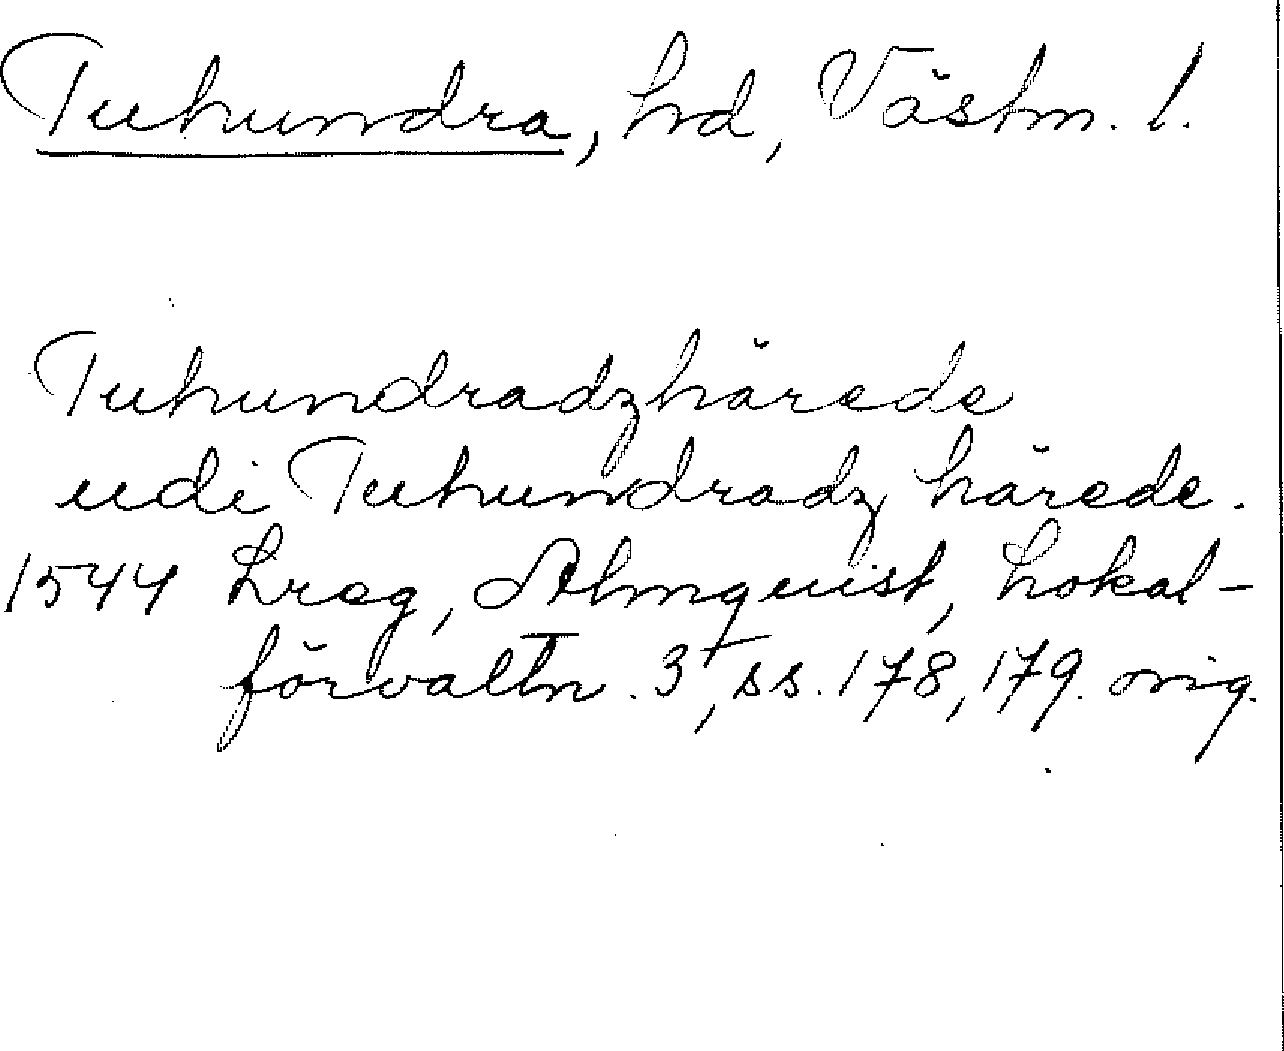 Tuhundra, hd, Västm. l.
Tuhundradzhärede
udi Tuhundradz härede.
1544 Lreg, Almquist, Lokal-
förvaltn. 3, ss. 178, 179. orig.